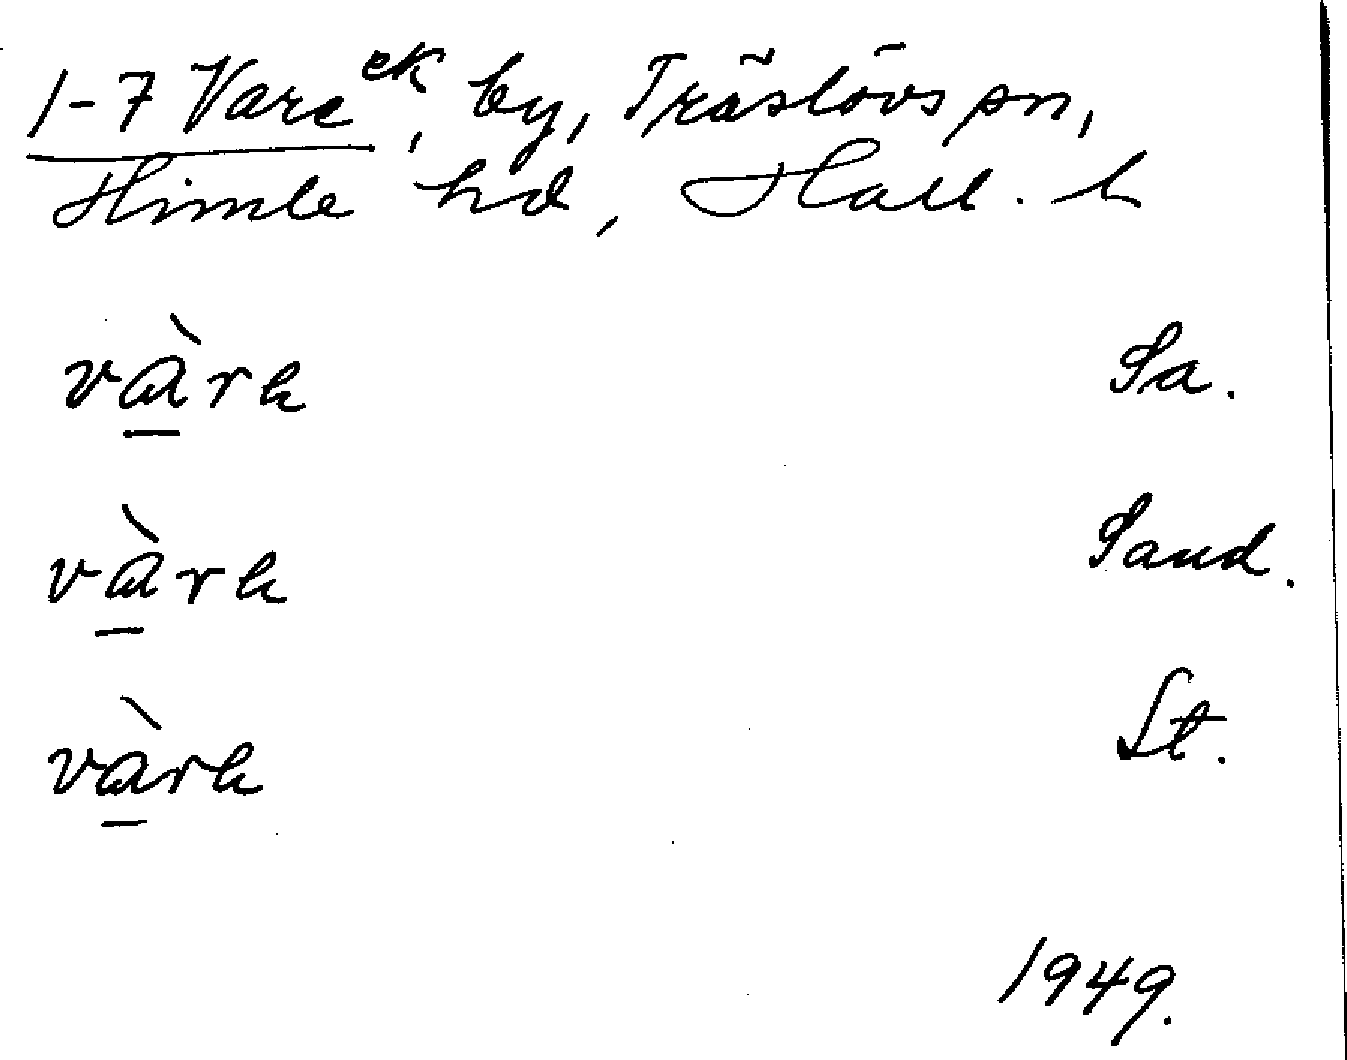 1-7 Vare ek, by, Träslövs sn,
Himle hd, Hall. l
vàrk Sa.
vàrk Sand.
vàrk St.
1949.